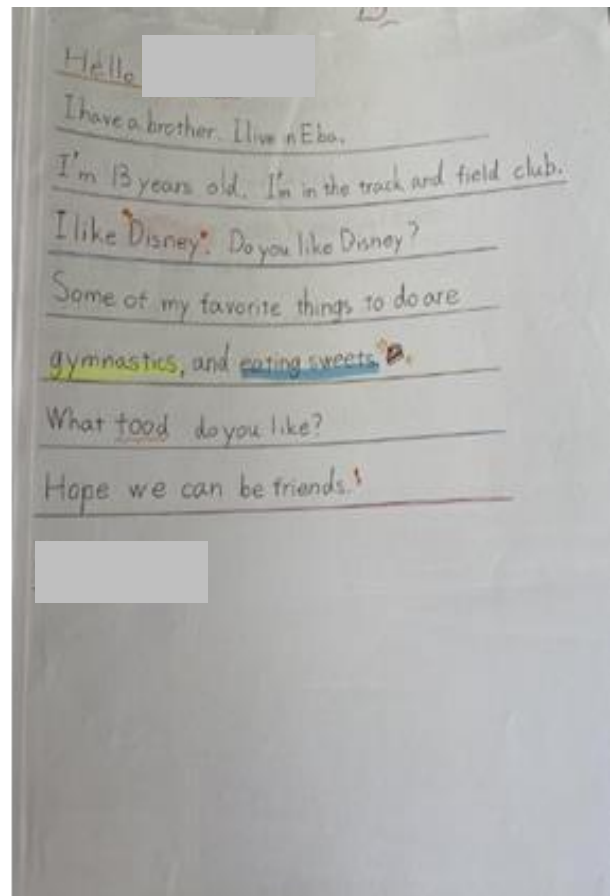 Hello
I have a brother. I live n Eba.
I'm 13 years old. I'm in the track and field club.
I like "Disney". Do you like Disney?
Some of my favorite things to do are
gymnastics, and eating sweets.
What food do you like?
Hope we can be friends.